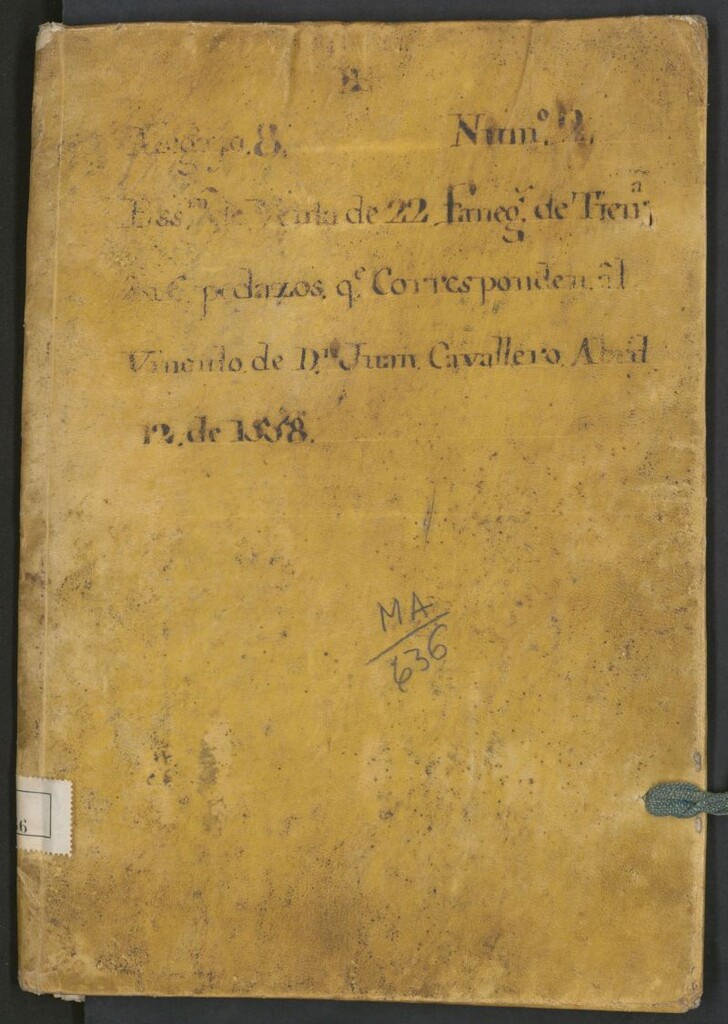 8. Num.º 2.
de Venta de 22 faneg.ˢ de Tierr.ª
pedazos, q.ᵉ Corresponden, al
Vinculo, de D.ⁿ Juan, Cavallero, Abril
12, de 1558.
MA
636
6